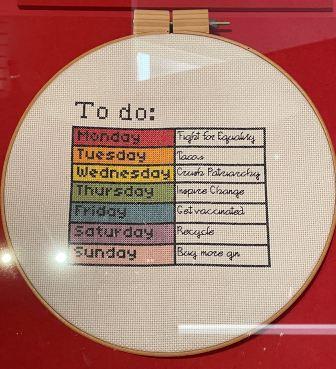 To do:
Monday Fight for Equality
Tuesday Tacos
Wednesday Crush Patriarchy
Thursday Inspire Change
Friday Get vaccinated
Saturday Recycle
Sunday Buy more gin